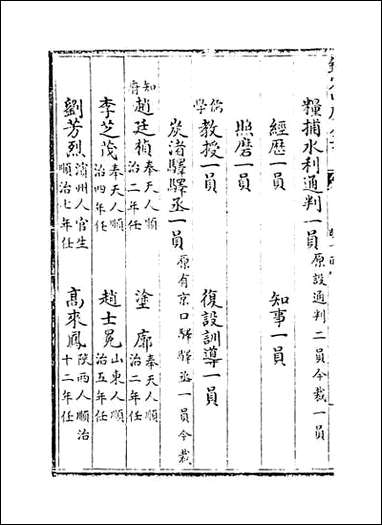 糧捕水利通判一員原設通判二員今裁一員
經歷一員　知事一員
照磨一員
儒學教授一員　復設訓導一員
炭渚驛驛丞一員原有京口驛驛丞一員今裁
知府趙廷楨奉天人順治二年任　塗廓奉天人順治二年任
李芝茂奉天人順治四年任　趙士冕山東人順治五年任
劉芳烈滿州人官生順治七年任　高來鳳陜西人順治十二年任